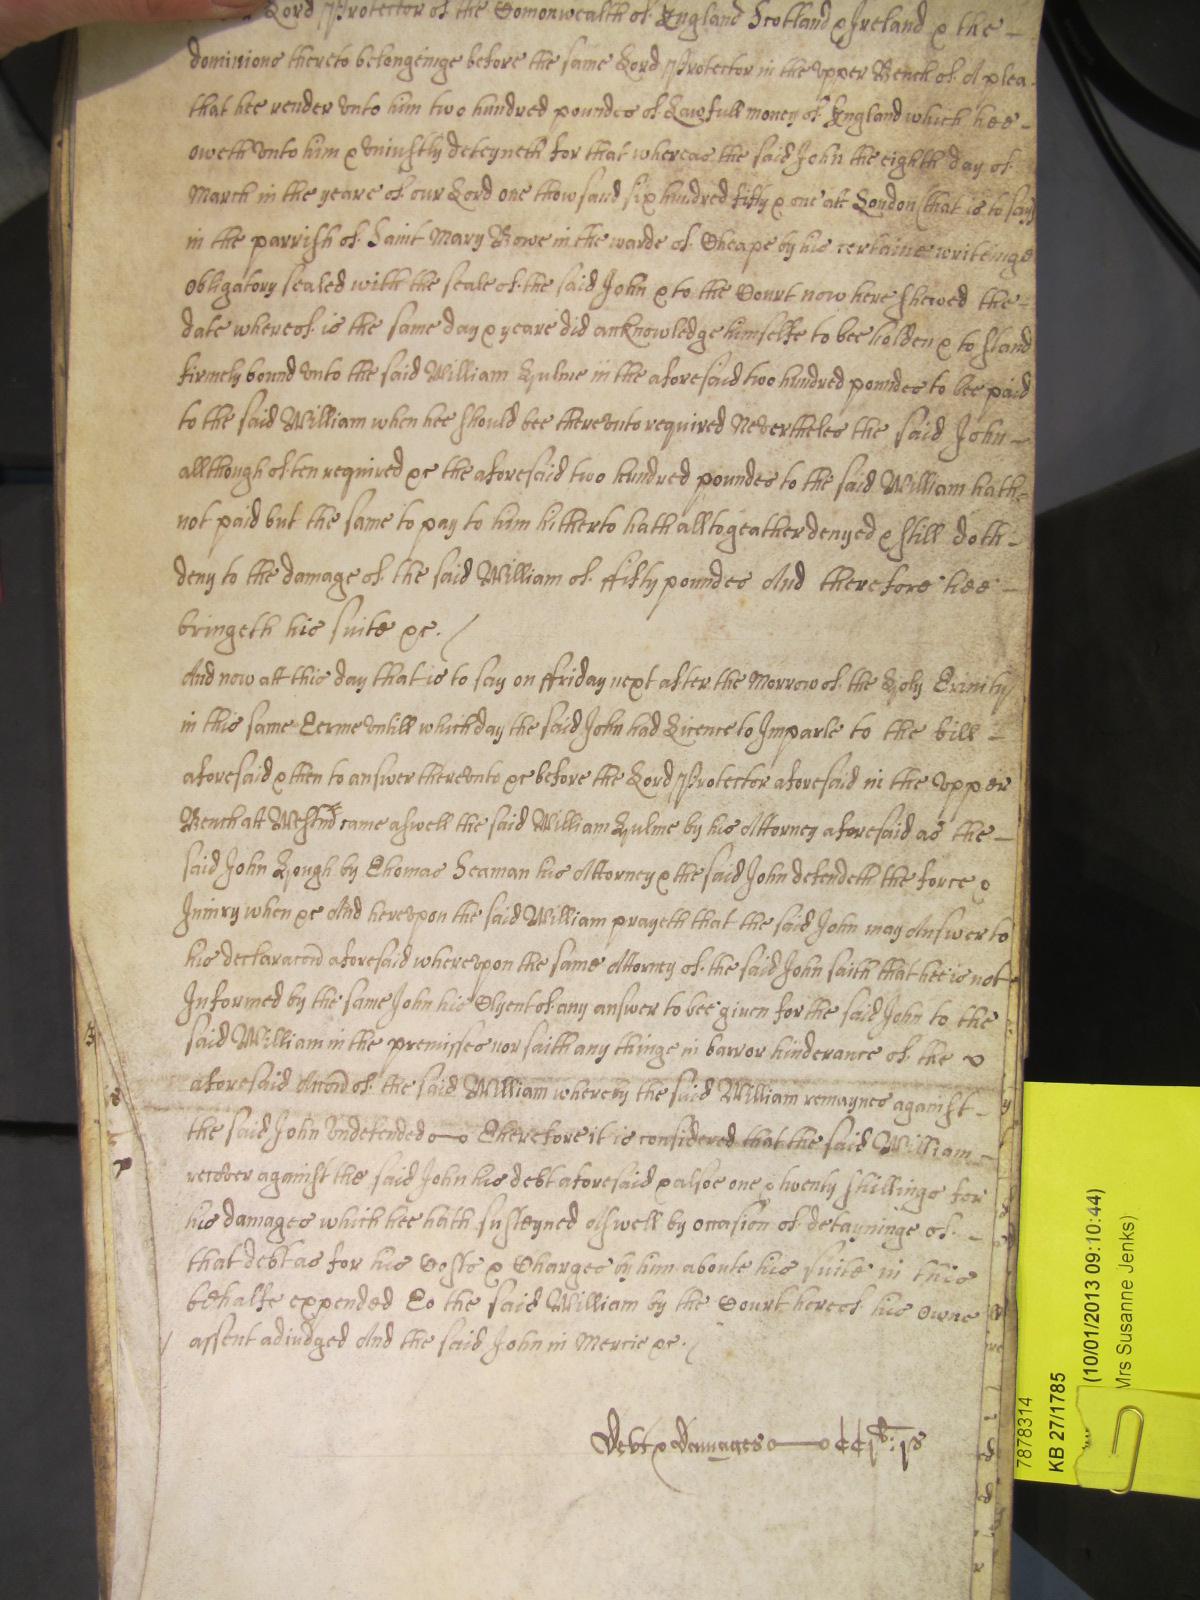 Lord Protector of the Comonwealth of England Scotland & Ireland & the
dominions thereto belongeinge before the same Lord Protector in the Upper Bench of A plea
that hee render unto him two hundred poundes of Lawfull money of England which hee
oweth unto him & uniustly deteyneth for that whereas the said John the eighth day of
March in the yeare of our Lord one thowsand six hundred fifty & one att London (that is to say)
in the parrish of Saint Mary Bowe in the warde of Cheape by his certaine writeinge
Obligatory sealed with the seale of the said John & to the Court now here shewed the
date whereof is the same day & yeare did acknowledge himselfe to bee holden & to stand
firmely bound unto the said William Hulme in the aforesaid two hundred poundes to bee paid
to the said William when hee should bee thereunto required Nevertheles the said John
allthough often required &c the aforesaid two hundred poundes to the said William hath
not paid but the same to pay to him hitherto hath alltogeather denyed & still doth
deny to the damage of the said William of fifty poundes And therefore hee
bringeth his suite &c.
And now att this day that is to say on ffriday next after the Morrow of the Holy Trinity
in this same Terme untill which day the said John had Licence to Imparle to the bill
aforesaid & then to answer thereunto &c before the Lord Protector aforesaid in the Upper
Bench att Westmr came aswell the said William Hulme by his Attorney aforesaid as the
said John Hough by Thomas Seaman his Attorney & the said John defendeth the force &
Iniury when &c And hereupon the said William prayeth that the said John may Answer to
his declaracon aforesaid whereupon the same Attorney of the said John saith that hee is not
Informed by the same John his Clyent of any answer to bee given for the said John to the
said William in the premisses nor saith any thinge in barr or hinderance of the
aforesaid Accon of the said William whereby the said William remaynes against
the said John undefended Therefore it is considered that the said William
recover against the said John his debt aforesaid & alsoe one & twenty shillings for
his damages which hee hath susteyned Aswell by occasion of detayninge of
that debt as for his Costs & Charges by him aboute his suite in this
behalfe expended To the said William by the Court hereof his owne
assent adiudged And the said John in Mercie &c.
Debt & Damages CCjli: js
7878314
KB 27/1785
(10/01/2013 09:10:44)
Mrs Susanne Jenks)